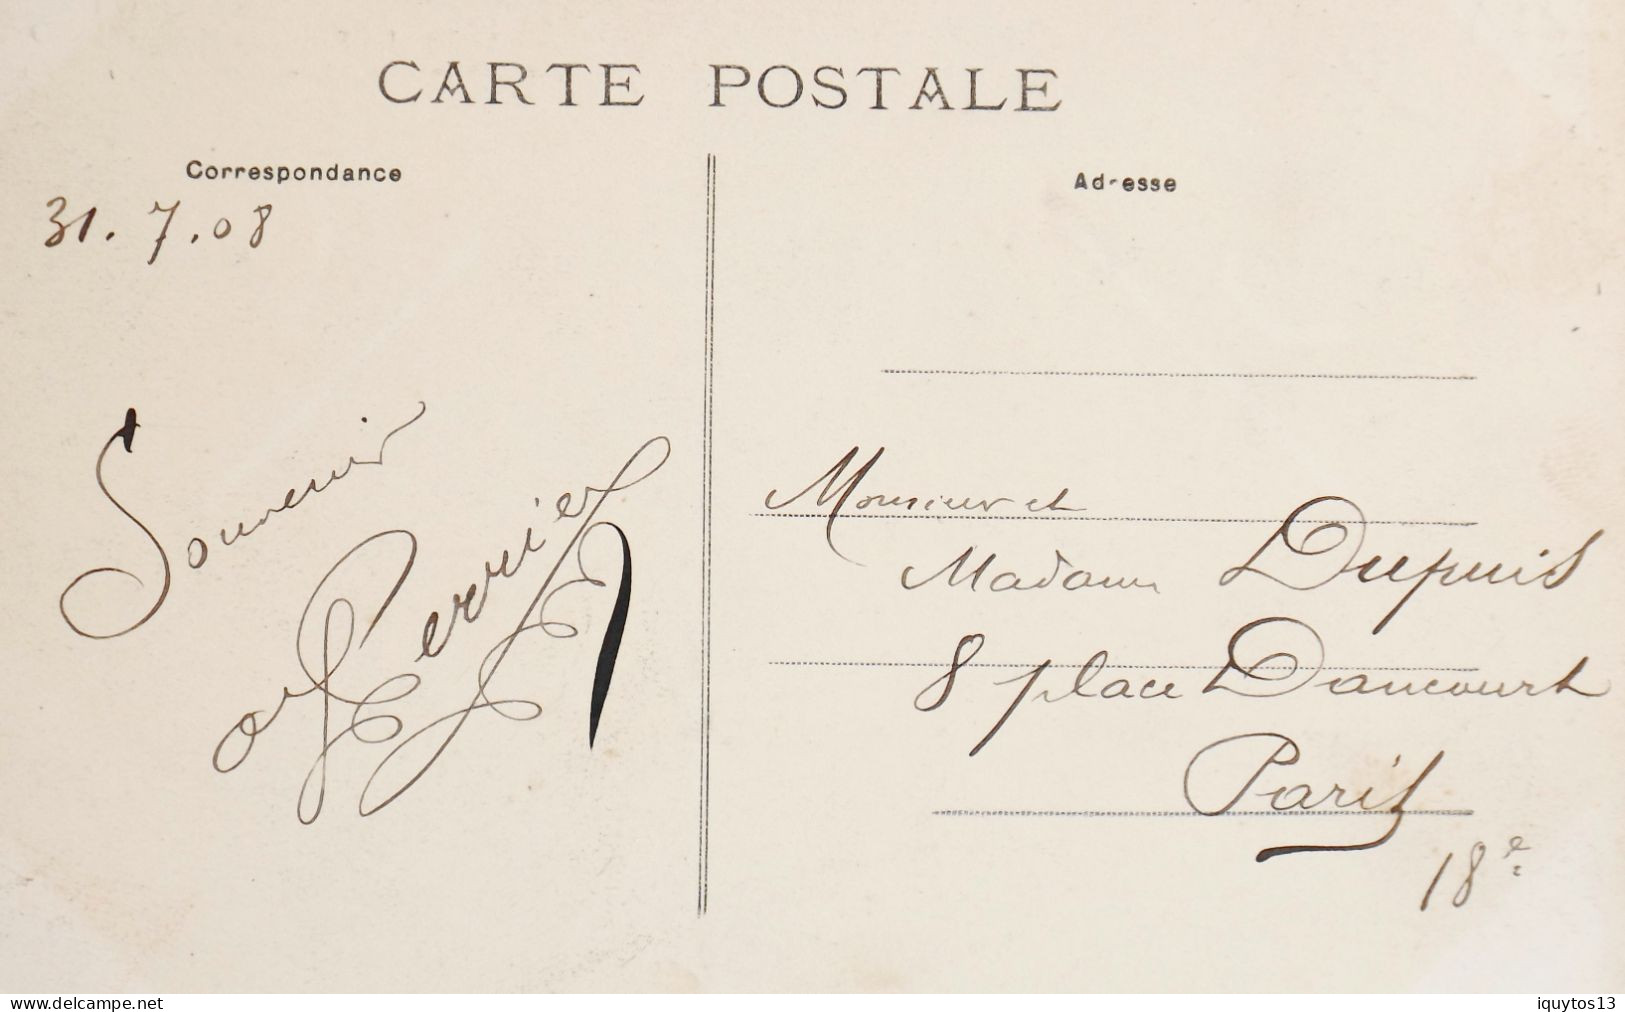 CARTE POSTALE
Correspondance
31.7.08
Souvenir
Perrier
Adresse
Monsieur et
Madame Dupuis
8 place Dancourt
Paris
18e
www.delcampe.net
iquytos13